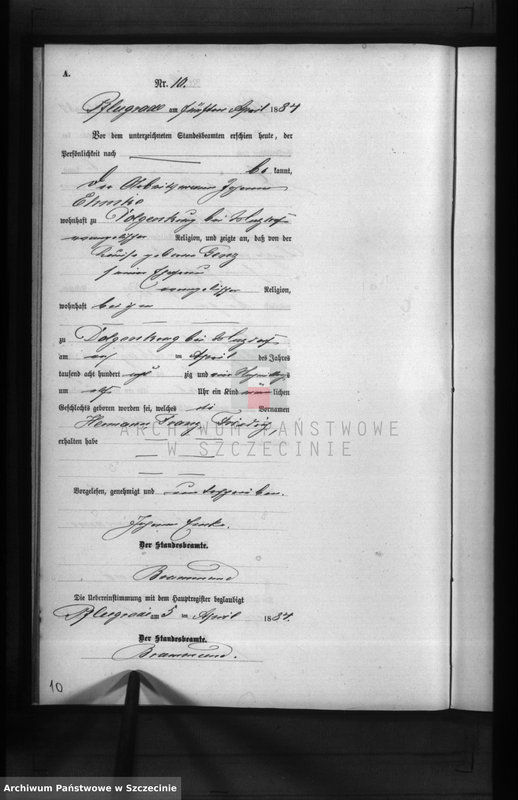 A.
Nr. 10.
Pflugrade am fünften April 1884
Vor dem unterzeichneten Standesbeamten erschien heute, der
Persönlichkeit nach
be kannt,
der Arbeitsmann Johann
wohnhaft zu Dolgenkrug bei
evangelischer Religion, und zeigte an, daß von der
Louise geborene Genz
seiner Ehefrau
evangelischer Religion,
wohnhaft bei ihm
zu Dolgenkrug bei
am April des Jahres
tausend acht hundert acht zig und vier Vormittags
um Uhr ein Kind männ lichen
Geschlechts geboren worden sei, welches die Vornamen
Hermann Franz
erhalten habe
Vorgelesen, genehmigt und unterschrieben.
Johann
Der Standesbeamte.
Die Uebereinstimmung mit dem Hauptregister beglaubigt
Pflugrade am 5 ten April 1884.
Der Standesbeamte.
10
ARCHIWUM PAŃSTWOWE
W SZCZECINIE
Archiwum Państwowe w Szczecinie